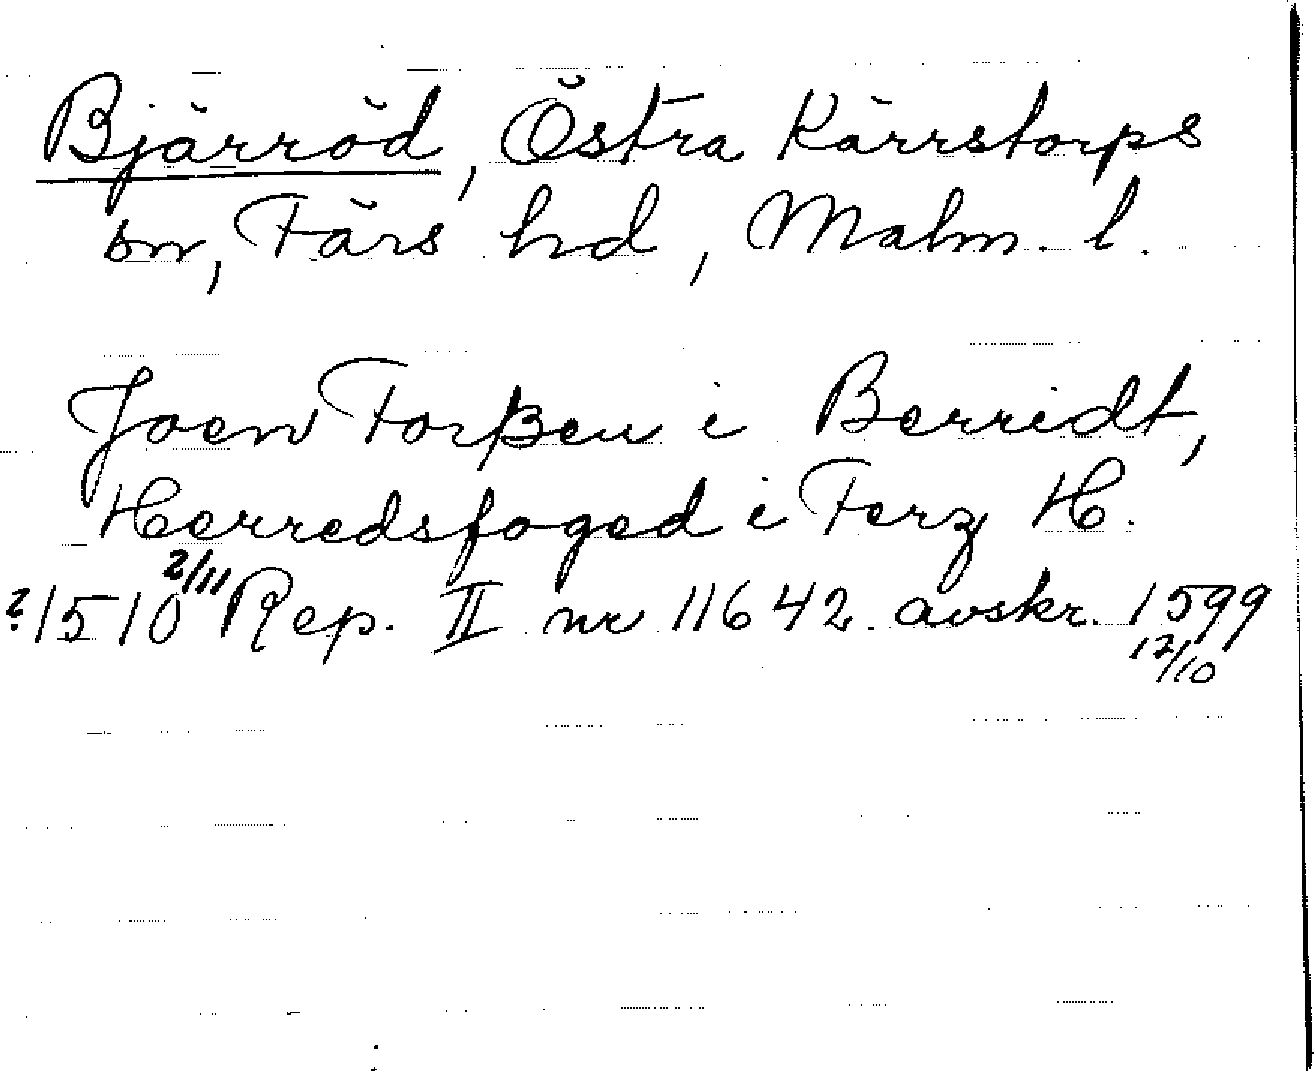 Bjärröd, Östra Kärrstorps
sn, Färs hd, Malm. l.
Joen Torßen i Berridt,
Herredsfoged i Ferz H.
?1510 2/11 Rep. II nr 11642 avskr. 1599
12/10